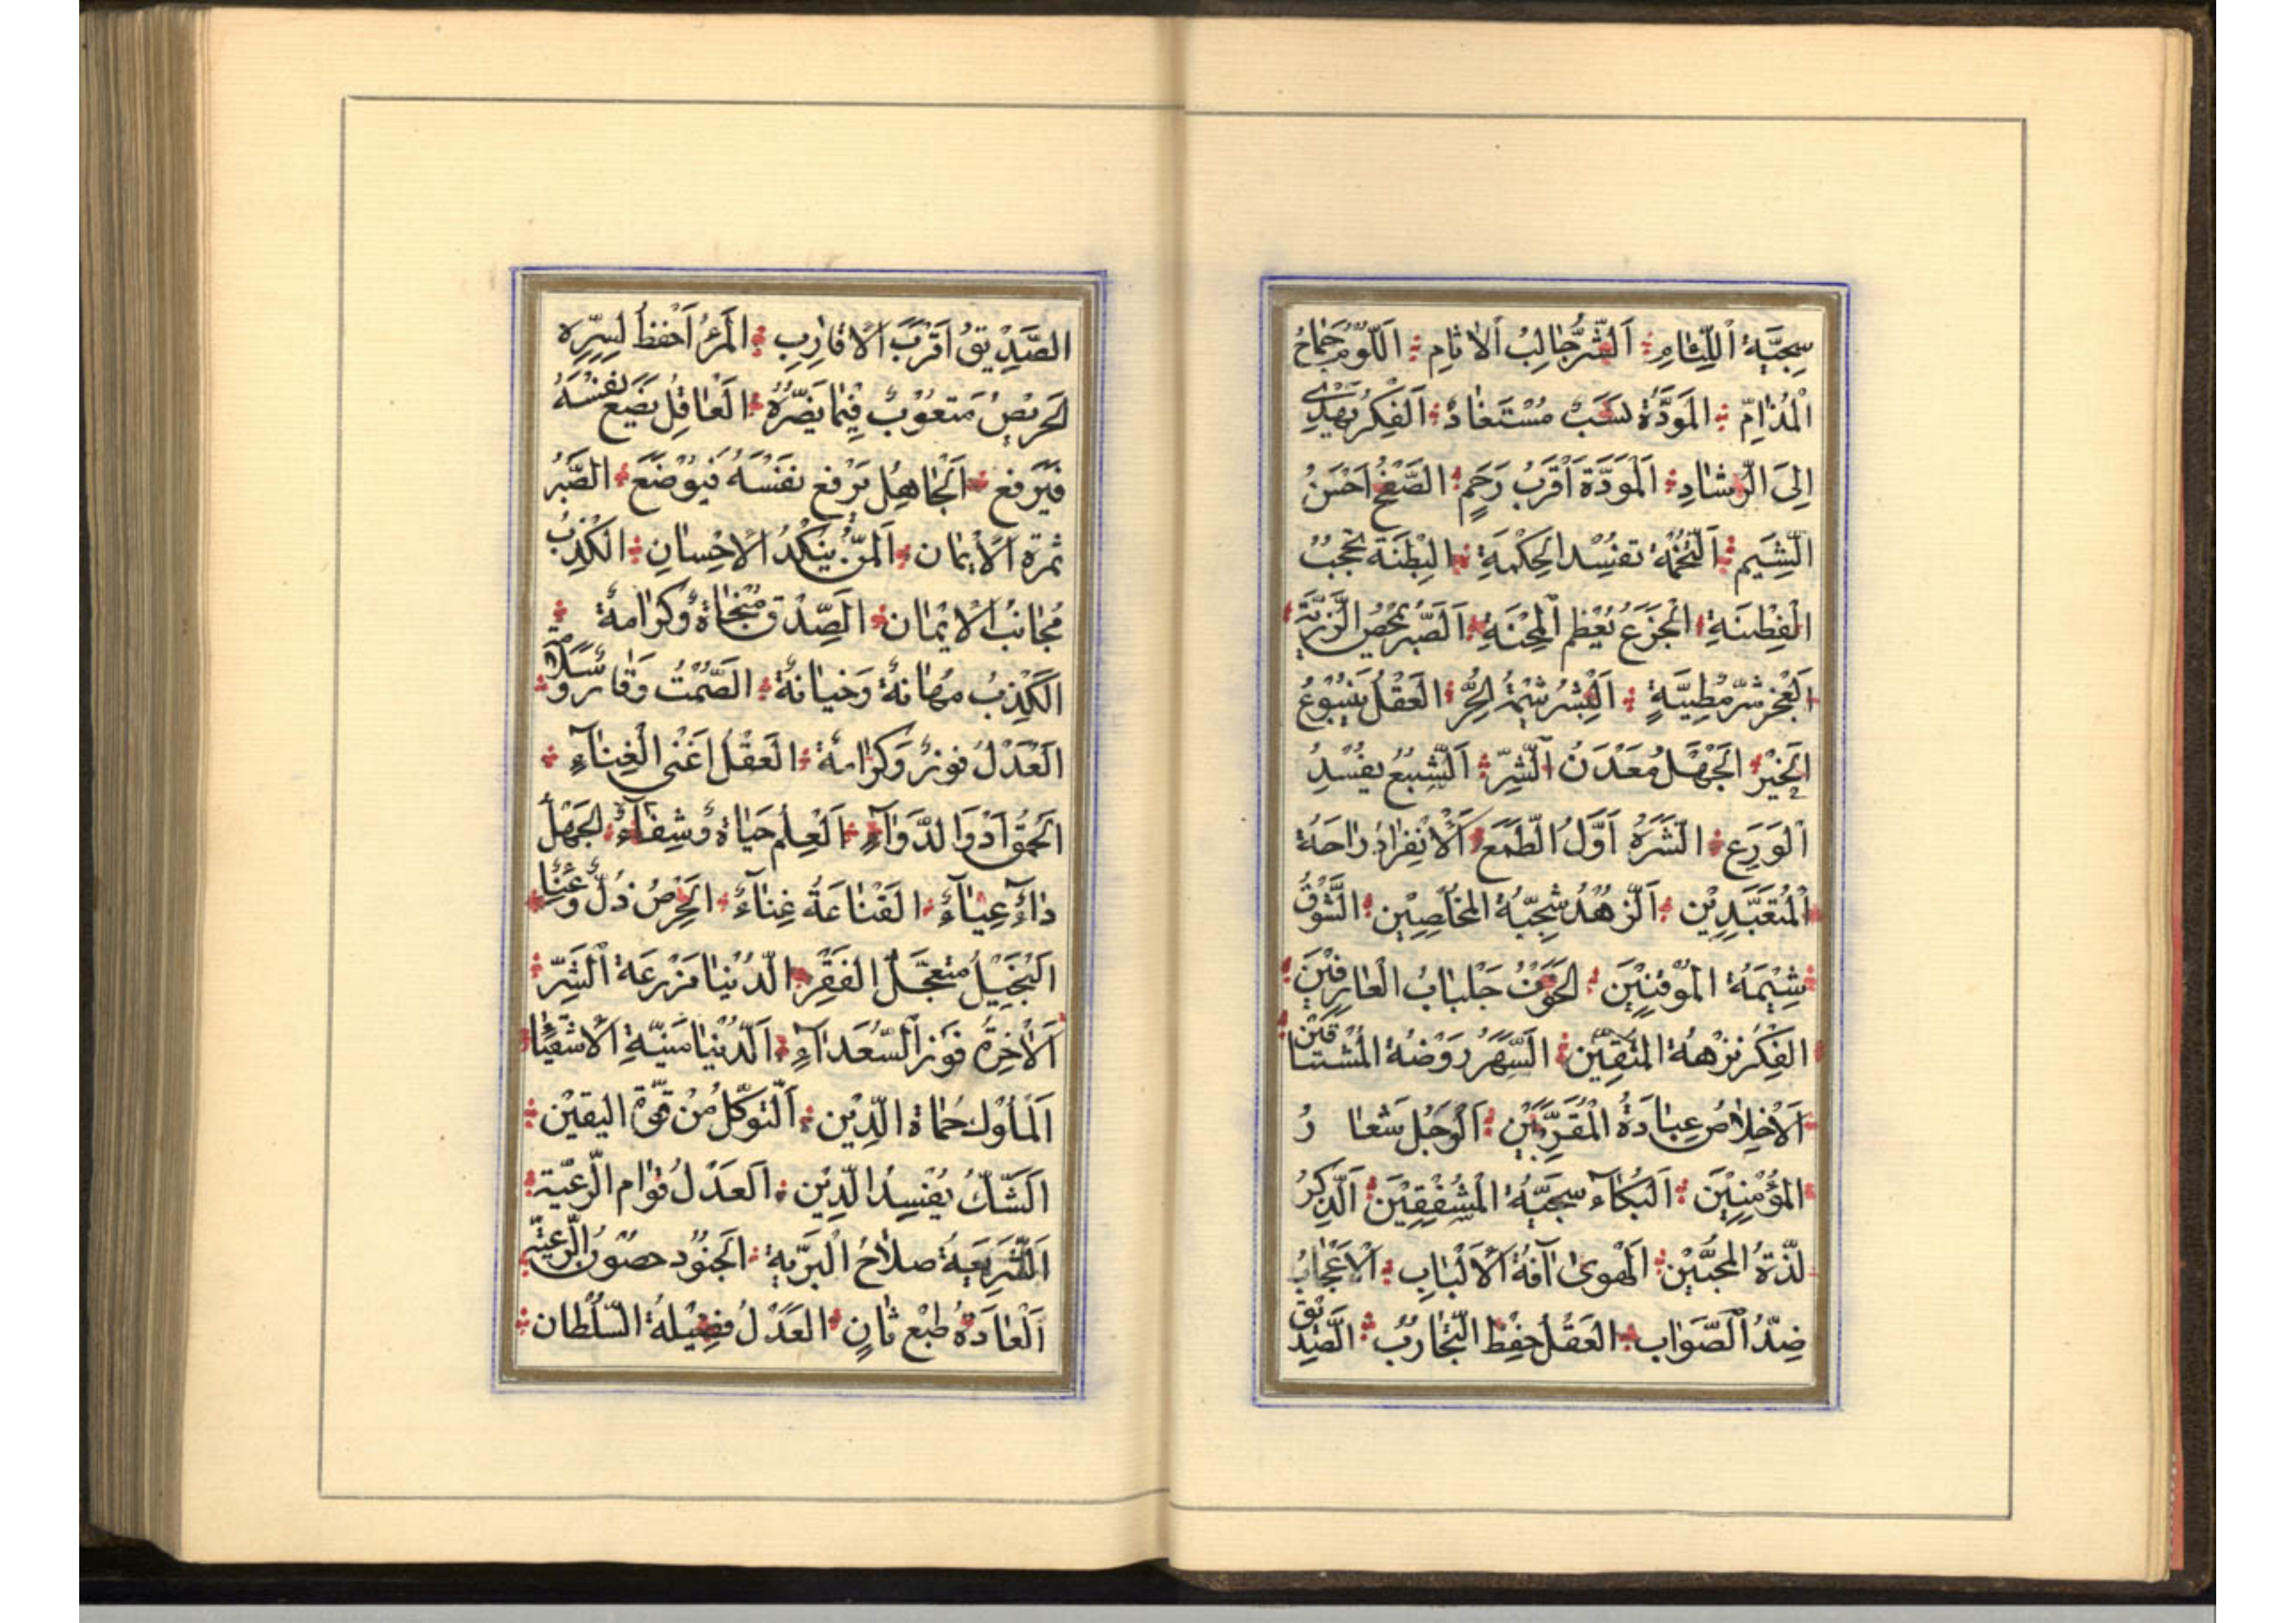 سِجِيَّةُ اَللِّئامِ اَلشَّرُّجالِبُ الْاثامِ اَللَّوُمُ جَماعُ
الْمَذامِّ المَوَدَّةُ نسَبٌ مُسْتَفادٌ اَلفِكرُيَهْدي
اِلىَ الرَّشادِ اَلْمَوَدَّةُ اَقْرَبُ رَحِمٍ الصَّفْحُ اَحْسَنُ
الشِّيَمِ اَلتُّخْمَةُ تفسِدُ الحِكْمَةِ البِطْنَةُ تحْجبُ
الْفِطنَةِ اَلْجَزَعُ يُعْظِم اَلمِحْنَةِ اَلصَّبْرُ يمَحّصُ الرَّزِيَّةِ
اَلْعَجْزشَرّمَطِيَّةٍ اَلبِشْرُشيمَةُ الحُرِّ العَقْلُ يَنْبُوعُ
اَلخَيْرِ الجَهْلُ مَعَدَنُ الَشَّرِّ اَلشِّبعُ يفْسُدِ
اَلوَرَعِ الشَّرَهُ اَوَّلُ الطَّمَعِ اَلانْفِرادُ راحَةُ
اَلْمُتَعَبِّدِيْن اَلزُّهْدُ سَجِيَّةُ المخْلَصِيْن الشَّوْقُ
شِيْمَةُ المُوْقِنيْنَ الخَوْفُ جَلْبابُ الْعارِفيْنَ
الفِكْرُ نزْهةُ المتّقِيْن السَّهَرُ رَوْضةُ المُشْتاقيْن
اَلاْخِلاْصُ عِبادَةُ الْمُقَرَّبيْن اَلْوَجَلُ شعَا رُ
المُؤْمِنِيْنَ اَلبُكآء سجَيَّةُ المُشْفِقِيْنَ اَلذِّكرُ
لذَّةُ المُحبّيْن اَلْهَوىٰ اٰفةُ اَلاْلْبابِ اَلْاِعْجابُ
ضِدُّ الصَّوَاب العَقلُ حِفْظ التَّجارِبُ الصَّدِيْق
الصَّدِيقُ اَقْرَبُ الاَقارِبِ المَرْءُ اَحْفظُ لِسِرِّه
الحَريْصُ مَتعوُبٌ فِيْما يَضُرُّهُ اَلْعاقِلُ يضَعُ نفْسَهُ
فَيَرفع اَلْجاهِلُ يَرْفع نفَسْهَُ فيوُضَعَ الصَّبْرُ
ثمَرَة الاْيمان اَلمَنُّ يُنَكِّدُ الاِحْسانِ الكَذِبُ
مُجانبُ الاْيمْان اَلصِّدْق مَنْجاةٌ وَكَرامَةٌ
اَلكَذِبُ مهَانةٌ وَخيانَةٌ الصَّمْتُ وَقارٌ وَسَلامَةٌ
اَلْعَدْلُ فوْزٌ وَكَرامَةٌ العَقلُ اَغنْى الْغِنآءِ
اَلحَمُقُ اَدْوَا لدَّوآءِ اَلعِلمُ حَياةٌ وَشِفآءٌ الجَهْلُ
دٰاءٌ عِيٰآءٌ القَناعَةُ غِنآءٌ الحِرْصُ ذُلٌّ وَّعَنٰا
اَلبْخَيْلُ متعجِّلُ الفَقْرِ الدُّنيا مَزْرعَة اَلشَّرِّ
اَلْاٰخِرَةُ فوَزالسُّعَدآءِ اَلدُّنْيا مُنيَةِ الْاَشقِيٰاءِ
اَلْمُلُوْك حُماة الدّيْن اَلتَّوَكّلُ مُنْ قوَّة اليَقيْن
اَلشَّكُّ يُفْسِدُ الدّيْن العَدْلُ قوامُ الرَّعيَّة
اَلشَّرِيَعةُ صلاحُ الْبَرَّيةِ اَلجُنوُد حصُوْنُ الرَّعِيَّةِ
اَلْعادَةُ طَبْعٌ ثانٍ العَدْلُ فضِيْلةُ السُّلْطان